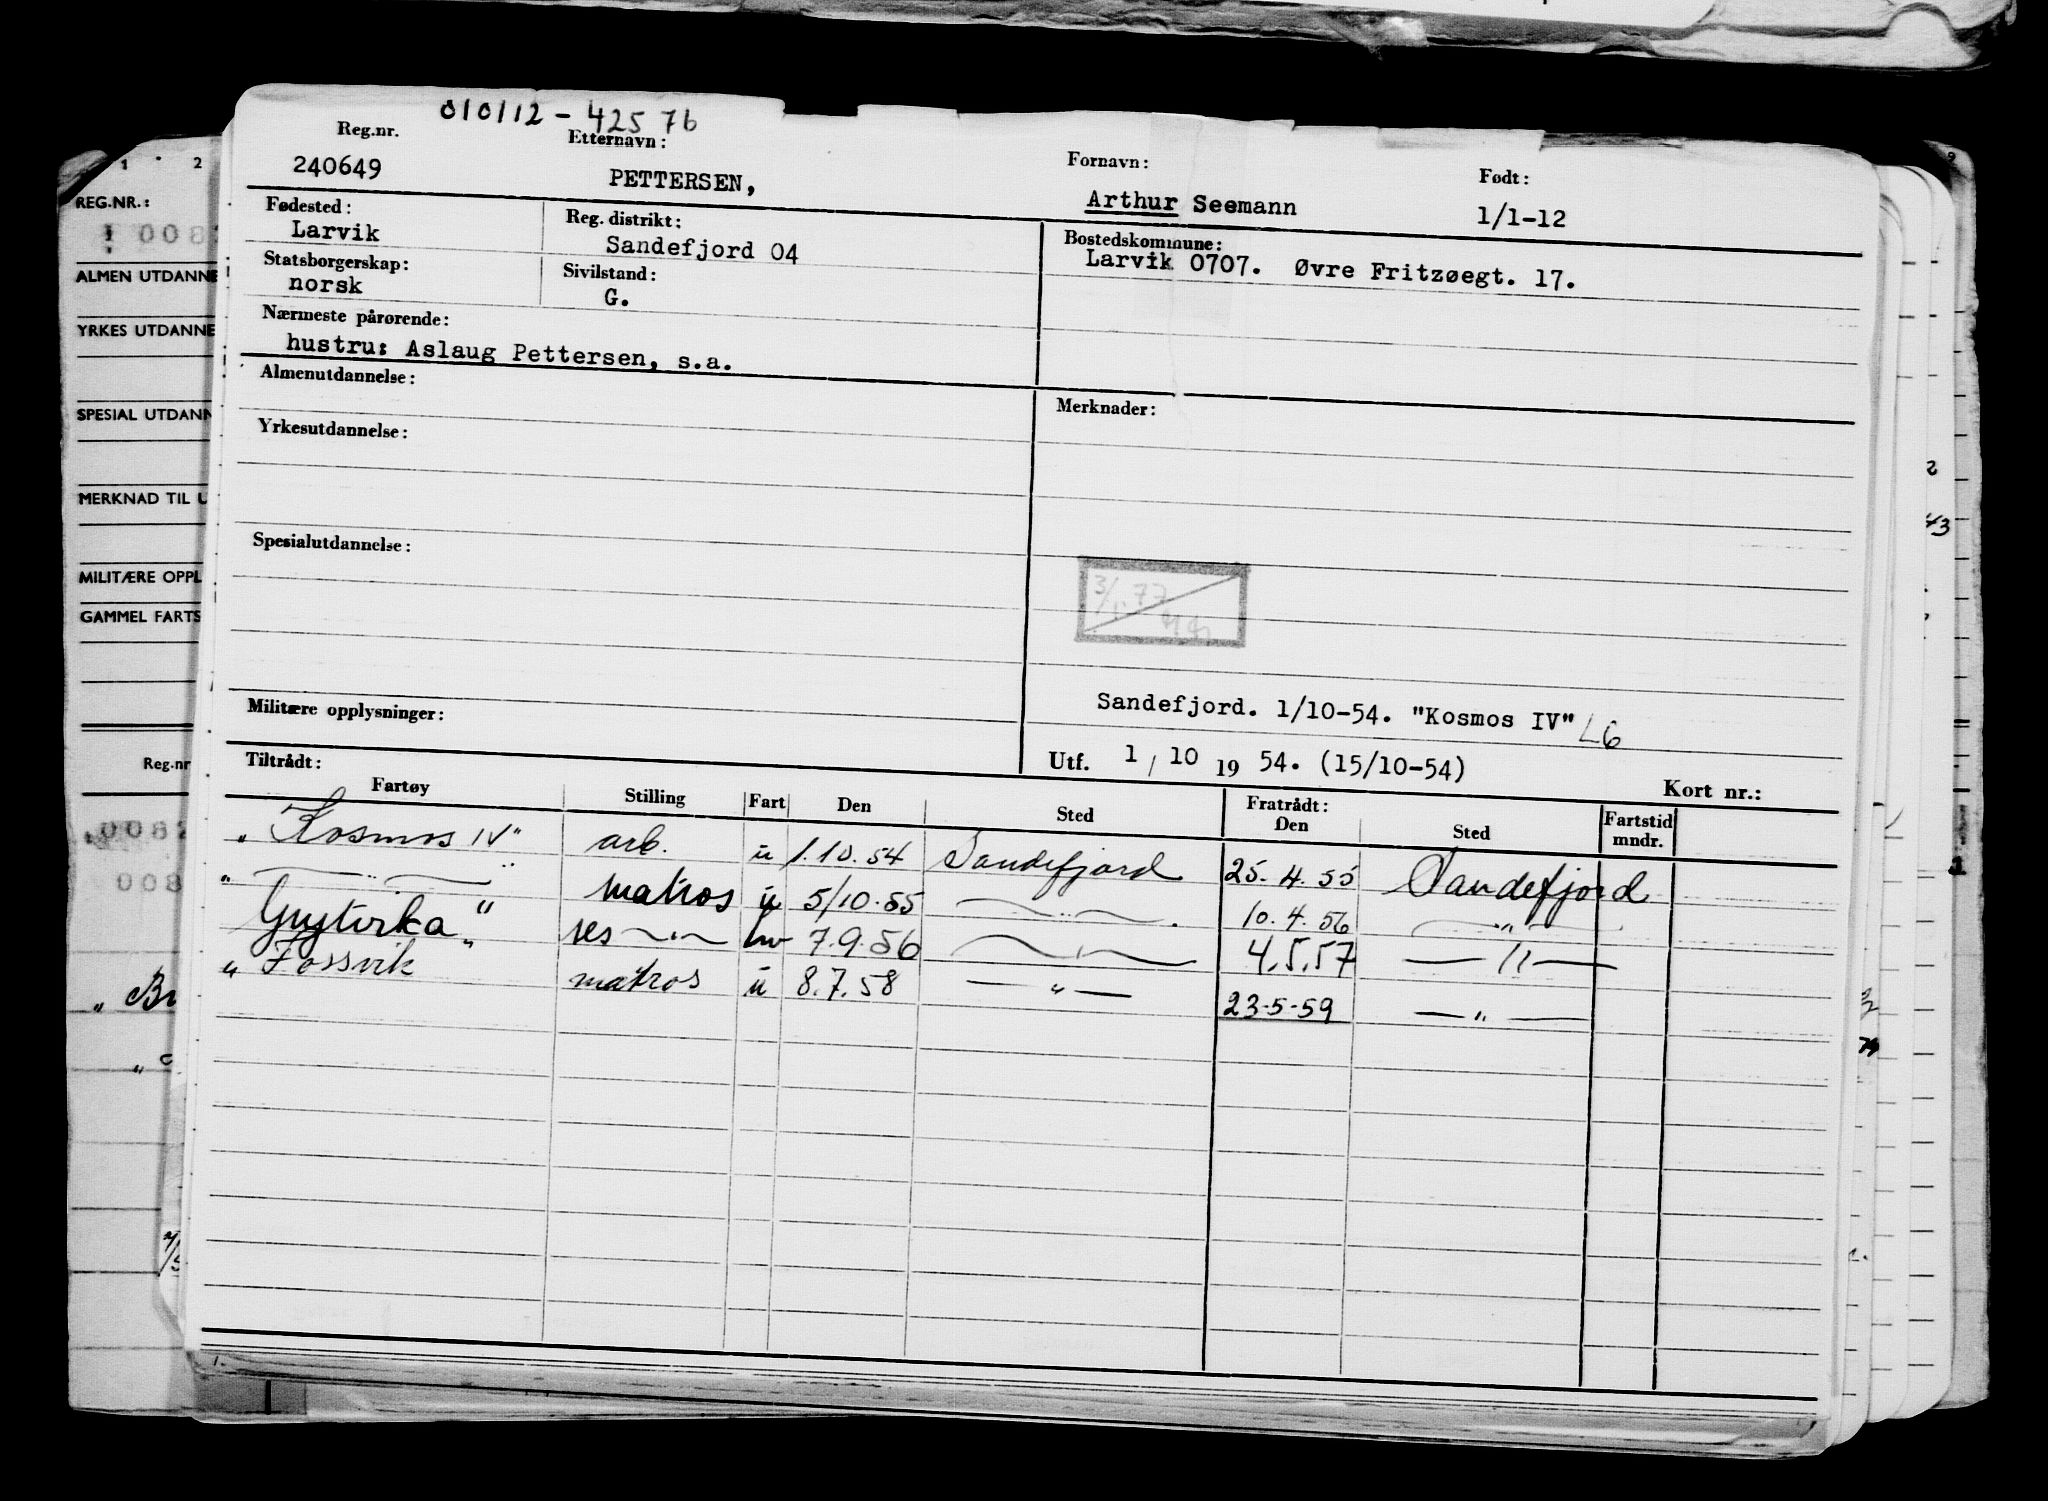 010112 - 425 76
Reg.nr. Etternavn: Fornavn: Født:
240649 PETTERSEN, Arthur Seemann 1/1-12
Fødested: Reg. distrikt: Bostedskommune:
Larvik Sandefjord 04 Larvik 0707. Øvre Fritzøegt. 17.
Statsborgerskap: Sivilstand:
norsk G.
Nærmeste pårørende:
hustru: Aslaug Pettersen, s.a.
Almenutdannelse: Merknader:
Yrkesutdannelse:
Spesialutdannelse:
3/1.77
Sandefjord. 1/10-54. "Kosmos IV" L6
Militære opplysninger:
Utf. 1/10 19 54. (15/10-54)
Tiltrådt: Kort nr.:
Fartøy Stilling Fart Den Sted Fratrådt: Den Sted Fartstid mndr.
"Kosmos IV" arb. u 1.10.54 Sandefjord 25.4.55 Sandefjord
— " — matros u 5/10.55 — " — 10.4.56 — " —
"Grytvika" res — " — hv 7.9.56 — " — 4.5.57 — " —
"Fossvik" matros u 8.7.58 — " — 23-5-59 — " —
1 2
REG.NR.:
ALMEN UTDANNE
YRKES UTDANNE
SPESIAL UTDANN
MERKNAD TIL U
MILITÆRE OPPL
GAMMEL FARTS
Reg.nr
0082
008
" Br